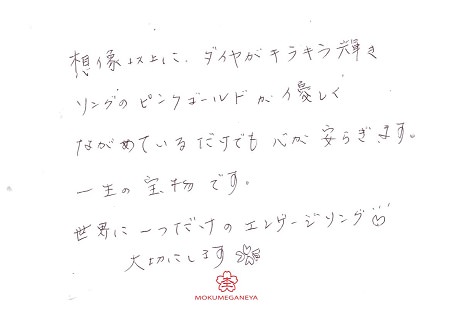 想像以上に、ダイヤがキラキラ輝き
リングのピンクゴールドが優しく
ながめているだけでも心が安らぎます。
一生の宝物です。
世界に一つだけのエンゲージリング
大切にします
MOKUMEGANEYA